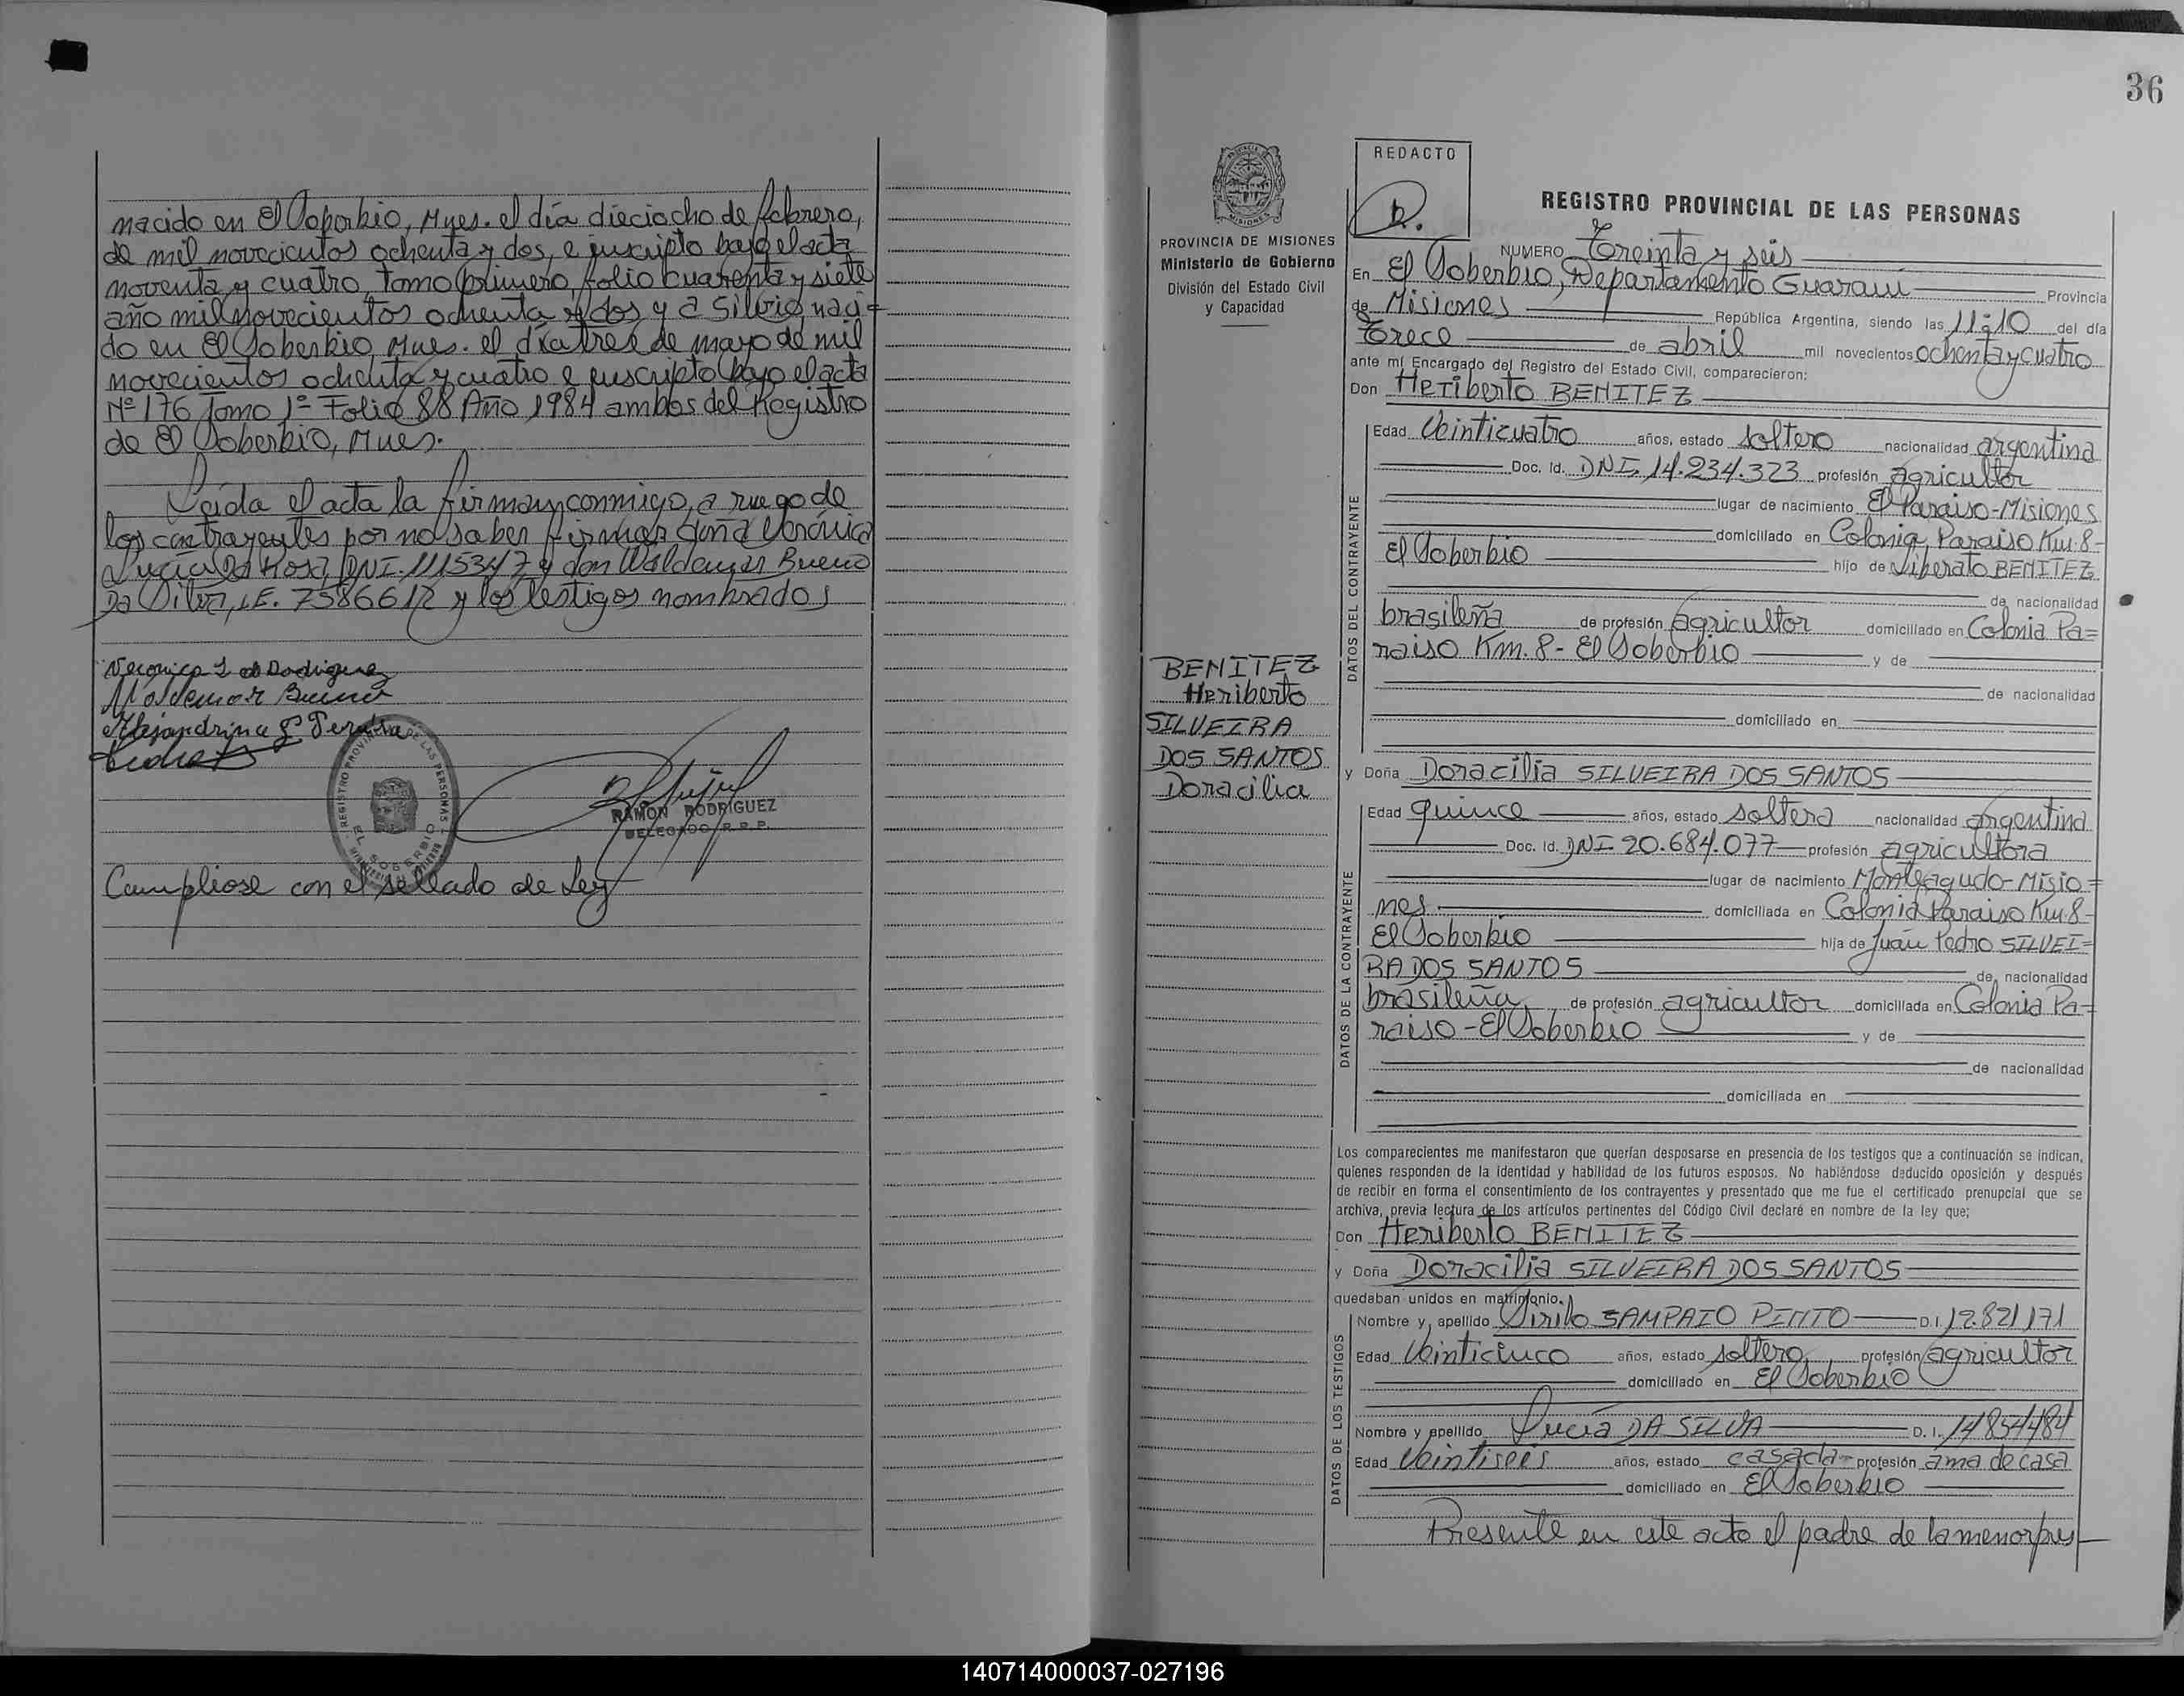 nacido en El Soberbio, Mnes. el día dieciocho de febrero,
de mil novecientos ochenta y dos, e inscripto bajo el acta
noventa y cuatro, tomo primero, folio cuarenta y siete
año mil novecientos ochenta y dos y a Silvio, naci=
do en El Soberbio, Mnes. el día tres de mayo de mil
novecientos ochenta y cuatro e inscripto bajo el acta
Nº 176 Tomo 1º Folio 88 Año 1984 ambos del Registro
de El Soberbio, Mnes.
Leída el acta la firman conmigo, a ruego de
los contrayentes por no saber firmar doña Verónica
Lucía Da Rosa, DNI. y don Waldemar Bueno
Da Silva, L.E. 7586612 y los testigos nombrados
Veronica L de Rodriguez
Waldemar Bueno
Alejandrina G. Peralta
REGISTRO PROVINCIAL DE LAS PERSONAS
EL SOBERBIO
RAMON RODRIGUEZ
DELEGADO R.P.P.
Cumpliose con el sellado de Ley
36
PROVINCIA DE MISIONES
Ministerio de Gobierno
División del Estado Civil
y Capacidad
BENITEZ
Heriberto
SILVEIRA
DOS SANTOS
Doracilia
REDACTO
REGISTRO PROVINCIAL DE LAS PERSONAS
NUMERO Treinta y seis
En El Soberbio, Departamento Guaraní Provincia
de Misiones República Argentina, siendo las 11:10 del día
Trece de abril mil novecientos ochenta y cuatro
ante mí Encargado del Registro del Estado Civil, comparecieron:
Don Heriberto BENITEZ
DATOS DEL CONTRAYENTE
Edad Veinticuatro años, estado soltero nacionalidad argentina
Doc. Id. DNI. 14.234.323 profesión agricultor
lugar de nacimiento El Paraiso-Misiones
domiciliado en Colonia Paraiso Km.8-
El Soberbio hijo de Liberato BENITEZ
de nacionalidad
brasileña de profesión agricultor domiciliado en Colonia Pa=
raiso Km. 8- El Soberbio y de
de nacionalidad
domiciliado en
y Doña Doracilia SILVEIRA DOS SANTOS
DATOS DE LA CONTRAYENTE
Edad quince años, estado soltera nacionalidad argentina
Doc. Id. DNI 20.684.077 profesión agricultora
lugar de nacimiento Monteagudo-Misio=
nes domiciliada en Colonia Paraiso Km.8-
El Soberbio hija de Juan Pedro SILVEI=
RA DOS SANTOS de nacionalidad
brasileña de profesión agricultor domiciliada en Colonia Pa=
raiso-El Soberbio y de
de nacionalidad
domiciliada en
Los comparecientes me manifestaron que querían desposarse en presencia de los testigos que a continuación se indican,
quienes responden de la identidad y habilidad de los futuros esposos. No habiéndose deducido oposición y después
de recibir en forma el consentimiento de los contrayentes y presentado que me fue el certificado prenupcial que se
archiva, previa lectura de los artículos pertinentes del Código Civil declaré en nombre de la ley que;
Don Heriberto BENITEZ
y Doña Doracilia SILVEIRA DOS SANTOS
quedaban unidos en matrimonio.
DATOS DE LOS TESTIGOS
Nombre y apellido Sirilo SAMPAIO PINTO D.I. 12.821.171
Edad Veinticinco años, estado soltero profesión agricultor
domiciliado en El Soberbio
Nombre y apellido Lucía DA SILVA D.I. 14854484
Edad Veintiseis años, estado casada profesión ama de casa
domiciliado en El Soberbio
Presente en este acto el padre de la menor pres
140714000037-027196